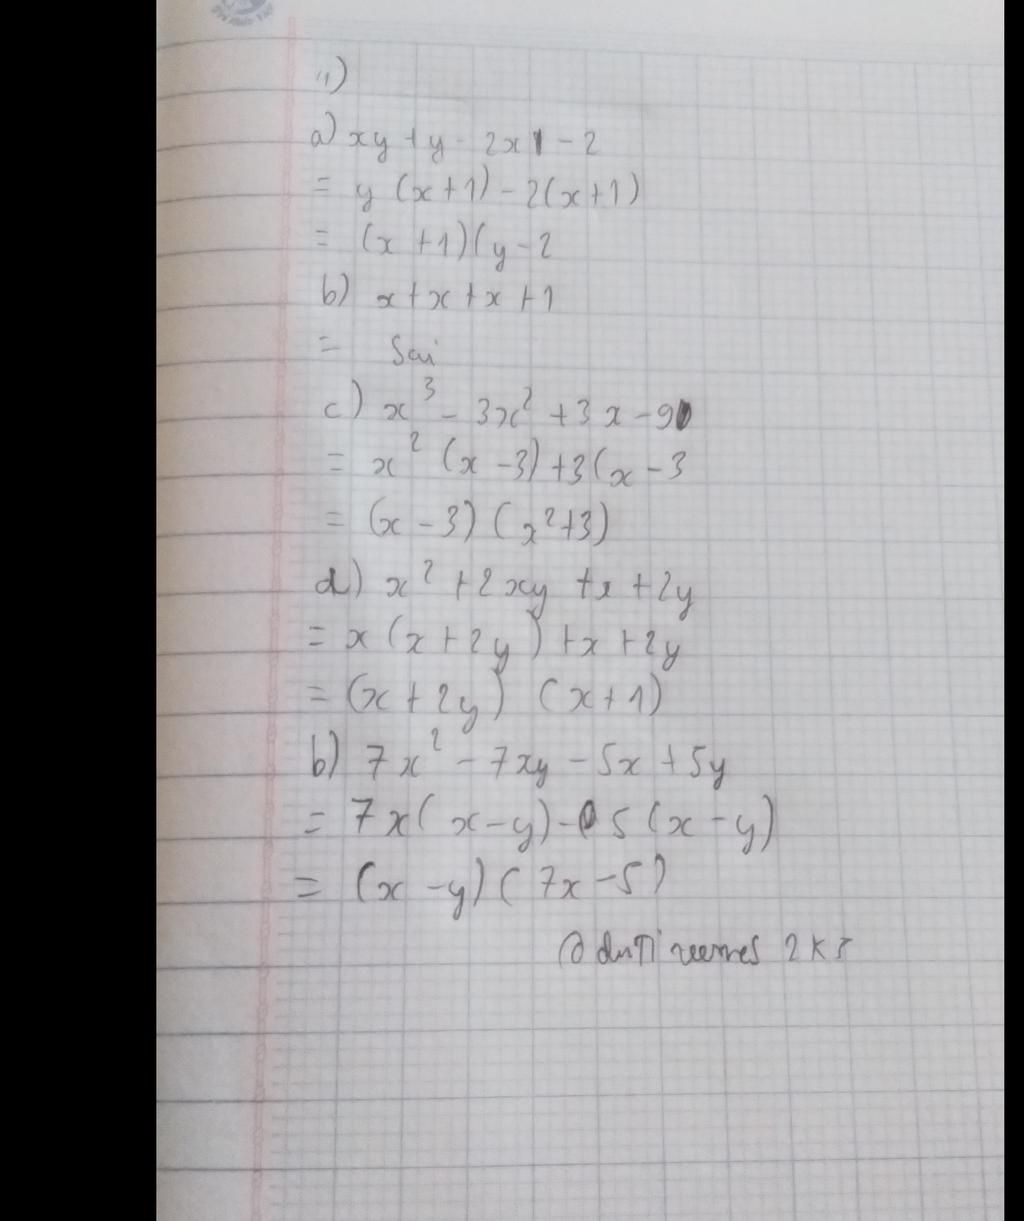 a) xy + y - 2x - 2
= y (x+1) - 2(x+1)
= (x+1)(y-2
b) x+x+x+1
= Sai
c) x³ - 3x² + 3x - 9
= x² (x-3)+3(x-3
= (x-3) (x²+3)
d) x² + 2xy + x + 2y
= x(x+2y) + x + 2y
= (x+2y) (x+1)
b) 7x² - 7xy - 5x + 5y
= 7x(x-y) - 5(x-y)
= (x-y)(7x-5)